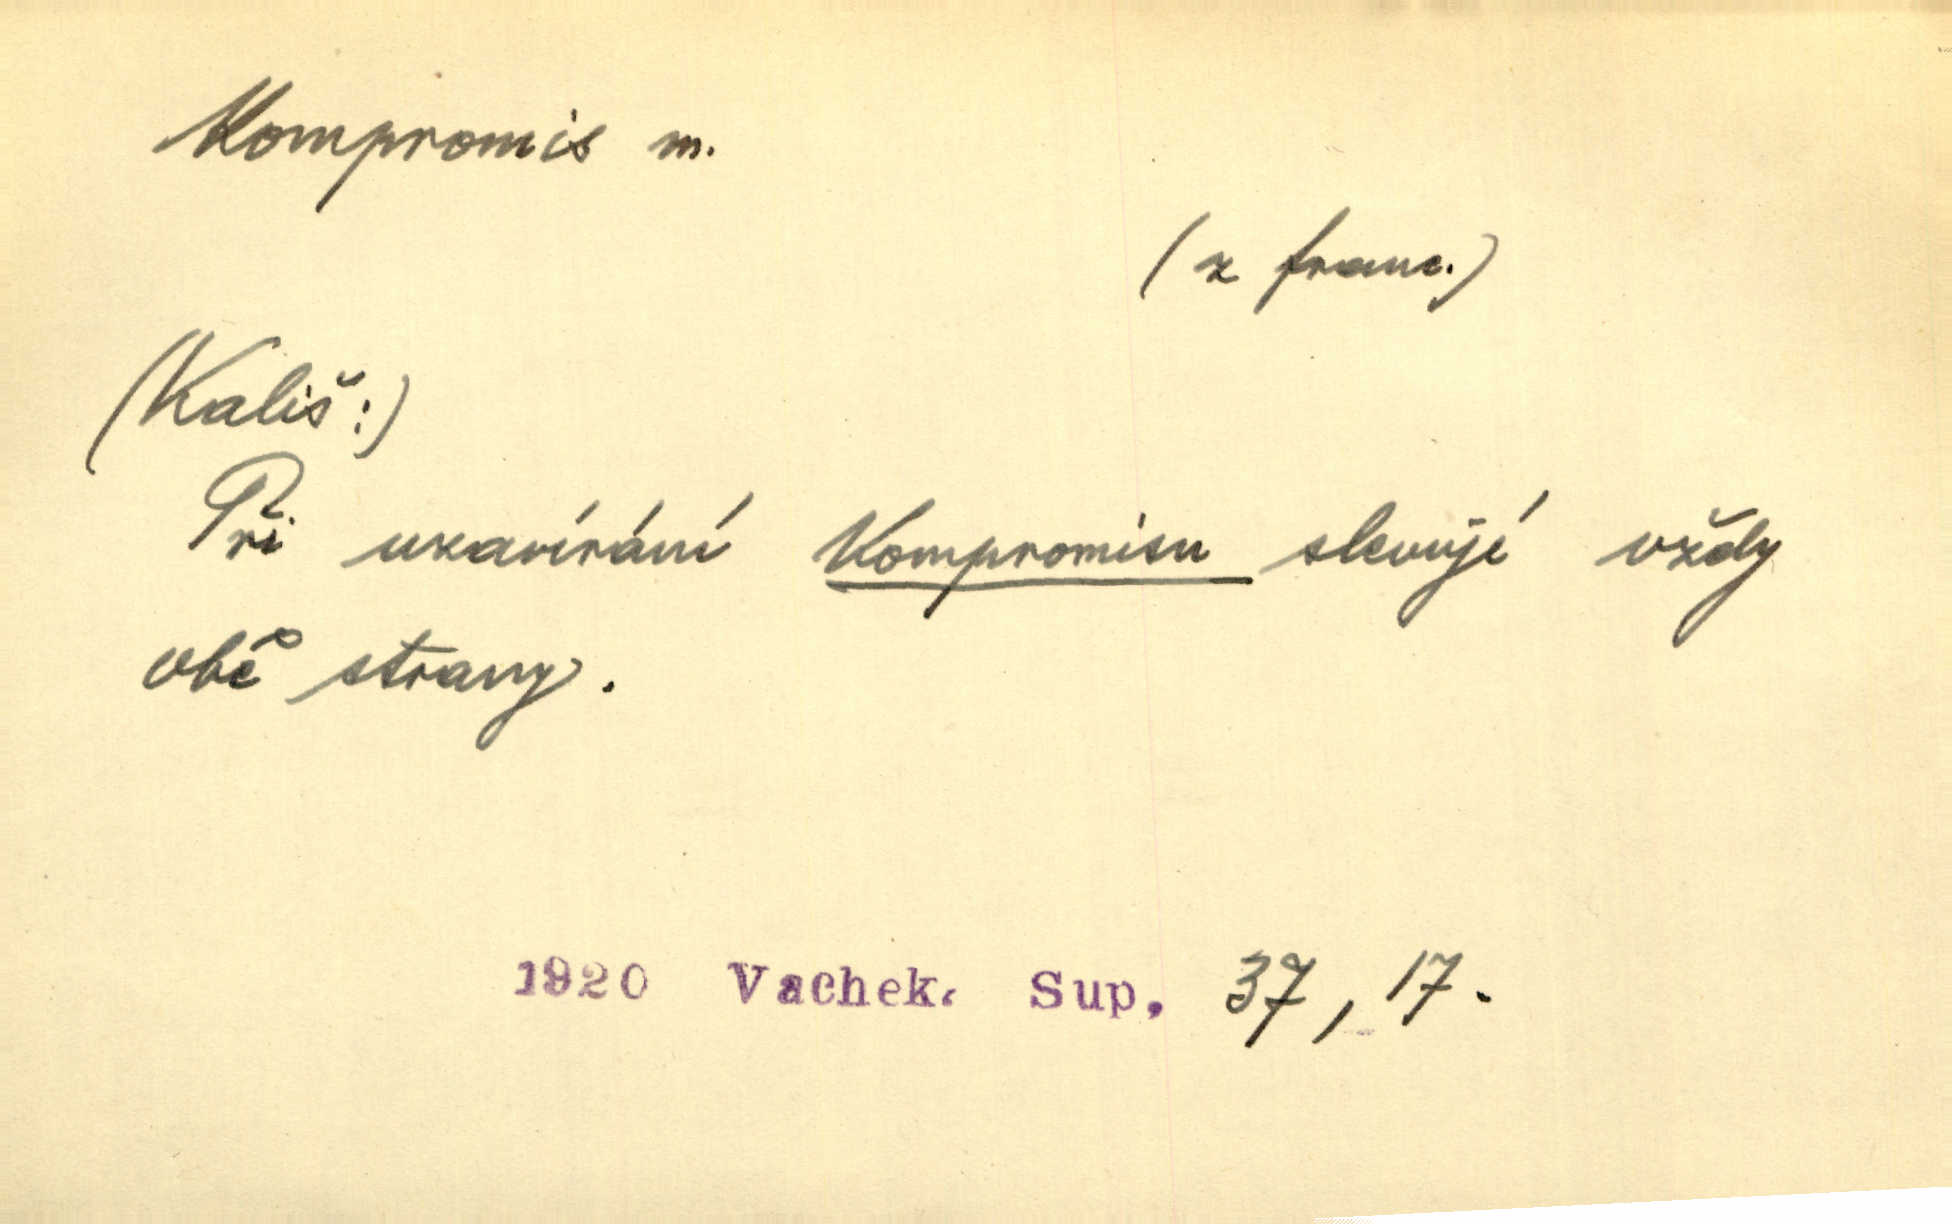 Kompromis m.
(z franc.)
(Kališ:)
Při uzavírání Kompromisu slevují vždy
obě strany.
1920 Vachek. Sup. 37, 17.